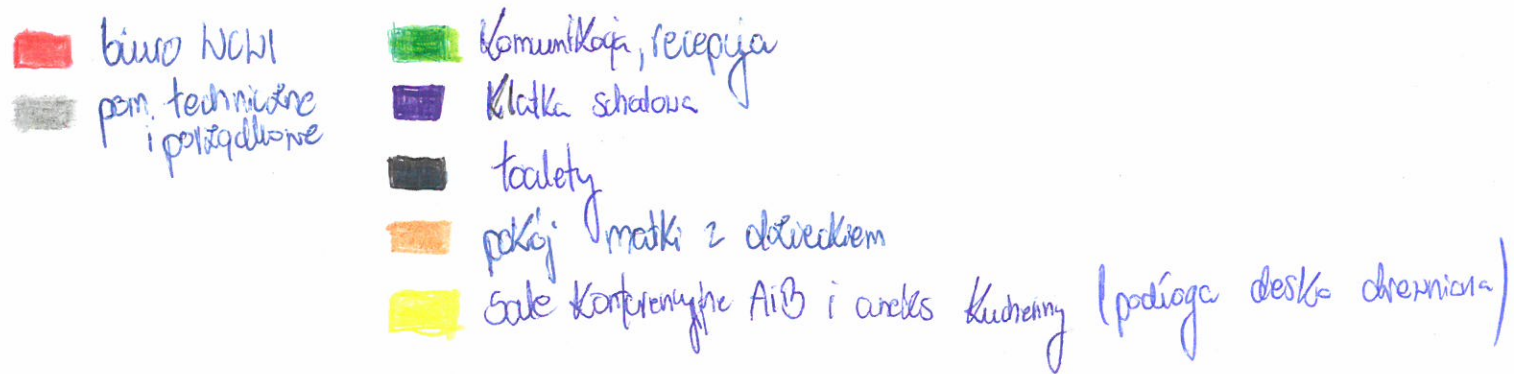 biuro WCWI
pom. techniczne
i porządkowe
Komunikacja, recepcja
Klatka schodowa
toalety
pokój matki z dzieckiem
Sale Konferencyjne A i B i aneks Kuchenny (podłoga deska drewniana)